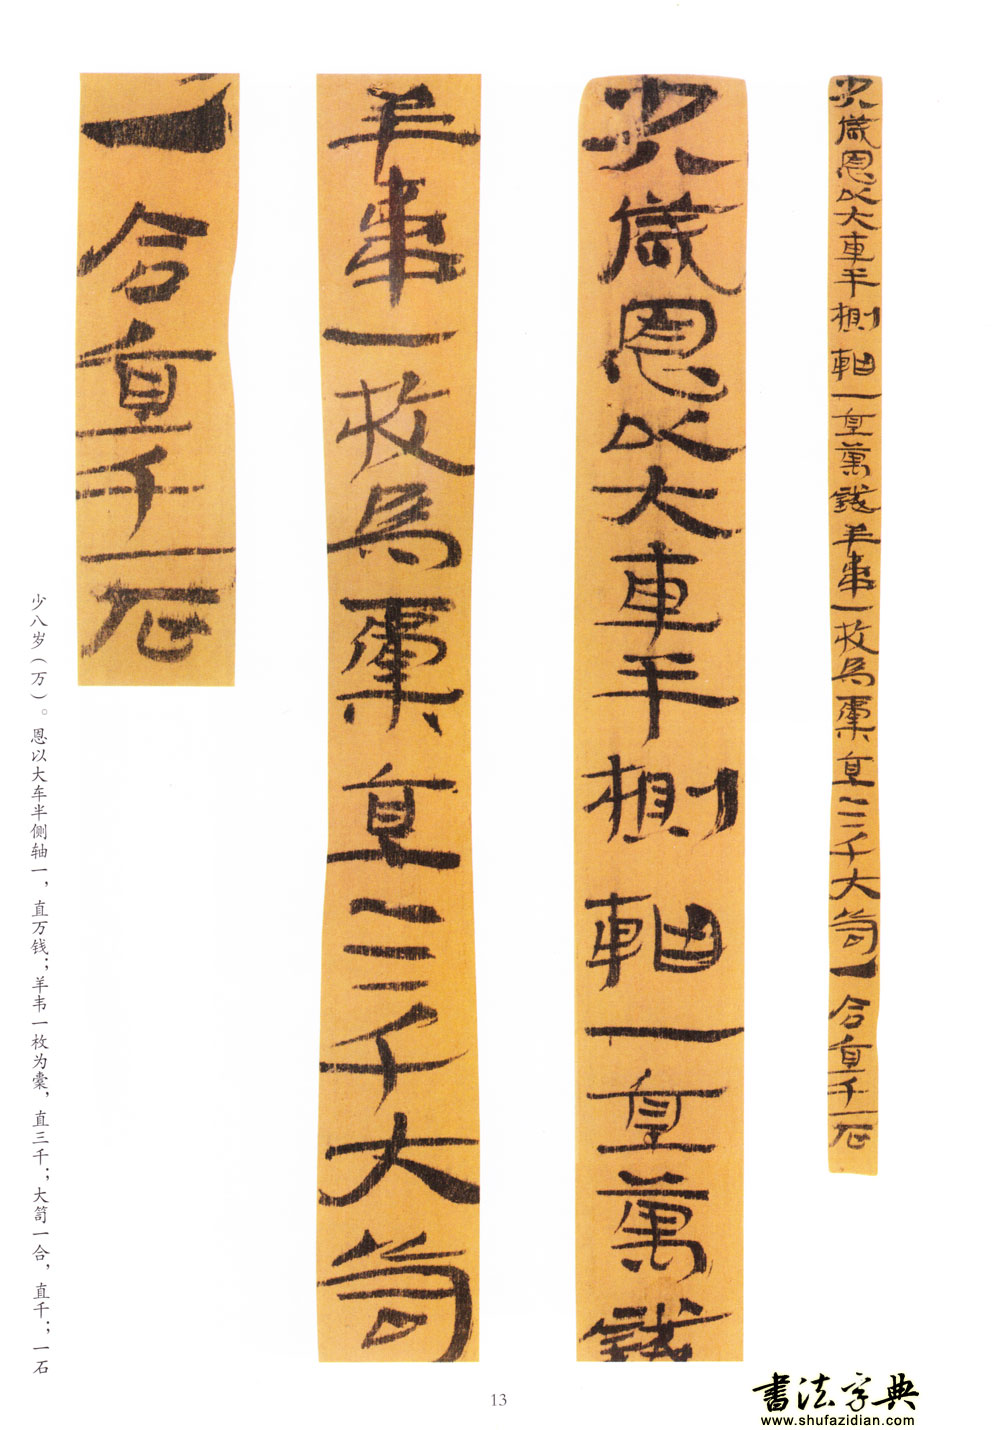 少八歲恩以大車半㮟軸一直萬錢羊韋一枚為橐直三千大笥一合直千一石
少八歲恩以大車半㮟軸一直萬錢
羊韋一枚為橐直三千大笥
一合直千一石
少八岁（万）。恩以大车半侧轴一，直万钱；羊韦一枚为橐，直三千；大笥一合，直千；一石
13
书法字典
www.shufazidian.com